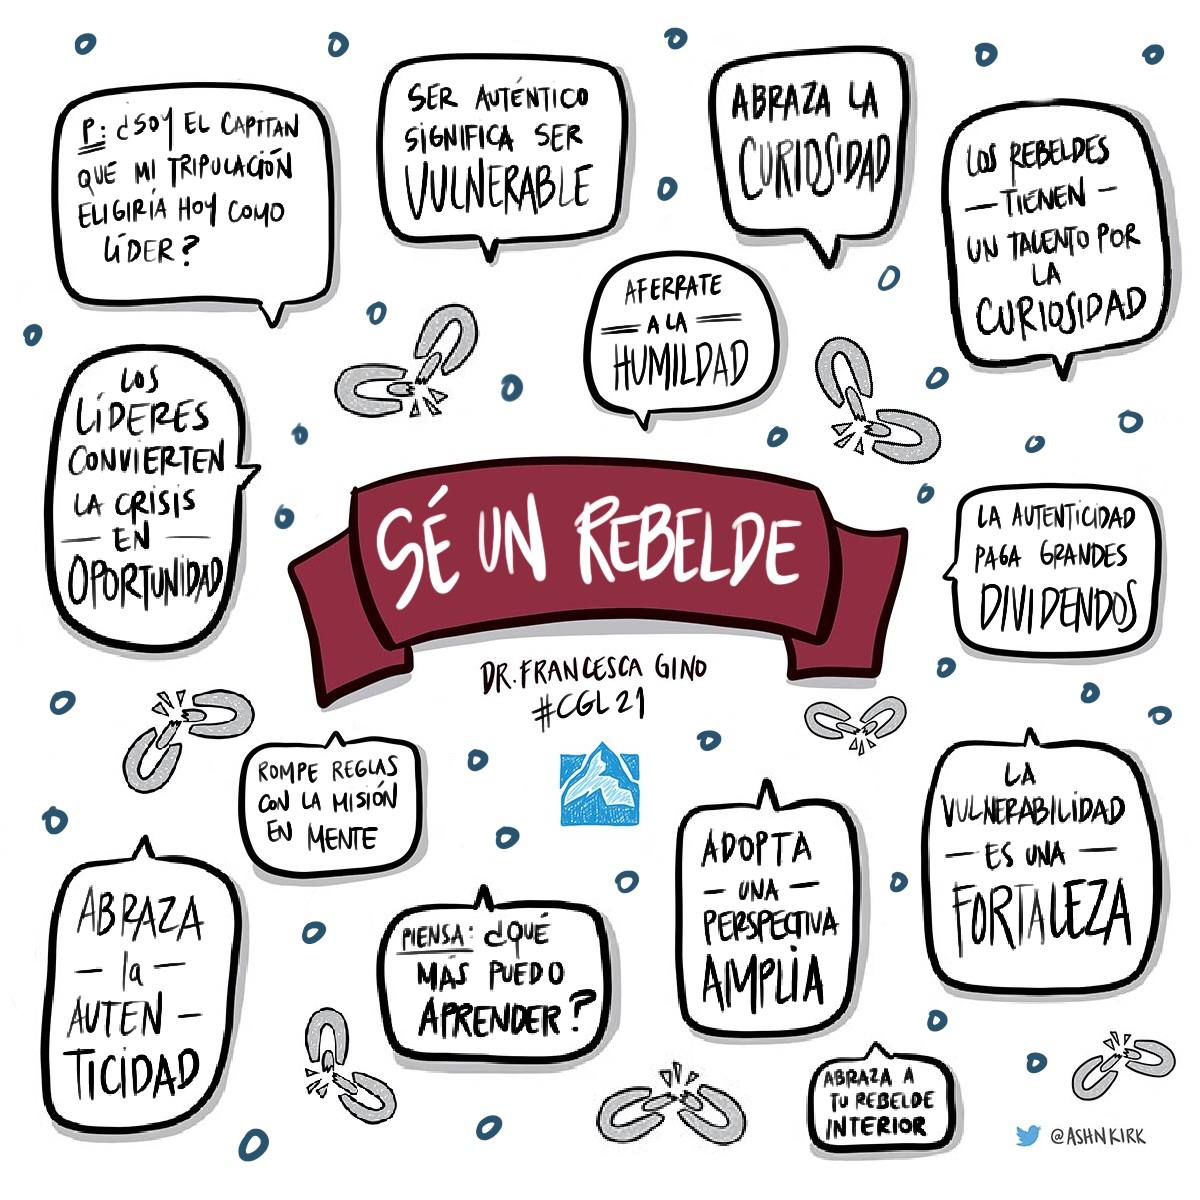 P: ¿SOY EL CAPITAN
QUE MI TRIPULACIÓN
ELIGIRÍA HOY COMO
LÍDER?
SER AUTÉNTICO
SIGNIFICA SER
VULNERABLE
ABRAZA LA
CURIOSIDAD
LOS REBELDES
— TIENEN —
UN TALENTO POR
LA
CURIOSIDAD
AFERRATE
A LA
HUMILDAD
LOS
LÍDERES
CONVIERTEN
LA CRISIS
— EN —
OPORTUNIDAD
SÉ UN REBELDE
DR. FRANCESCA GINO
#CGL21
LA AUTENTICIDAD
PAGA GRANDES
DIVIDENDOS
ROMPE REGLAS
CON LA MISIÓN
EN MENTE
ABRAZA
— la —
AUTEN —
TICIDAD
PIENSA: ¿QUÉ
MÁS PUEDO
APRENDER?
ADOPTA
— UNA —
PERSPECTIVA
AMPLIA
LA
VULNERABILIDAD
— ES UNA —
FORTALEZA
ABRAZA A
TU REBELDE
INTERIOR
@ASHNKIRK